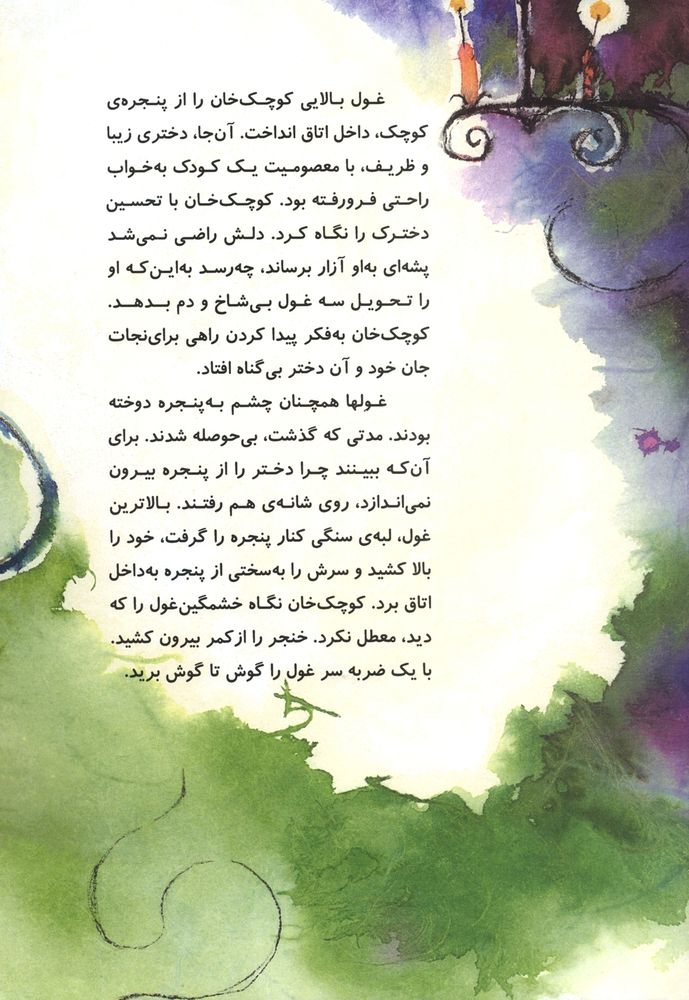 غول بالایی کوچک‌خان را از پنجره‌ی
کوچک، داخل اتاق انداخت. آن‌جا، دختری زیبا
و ظریف، با معصومیت یک کودک به‌خواب
راحتی فرورفته بود. کوچک‌خان با تحسین
دخترک را نگاه کرد. دلش راضی نمی‌شد
پشه‌ای به‌او آزار برساند، چه‌رسد به‌این‌که او
را تحویل سه غول بی‌شاخ و دم بدهد.
کوچک‌خان به‌فکر پیدا کردن راهی برای‌نجات
جان خود و آن دختر بی‌گناه افتاد.
غولها همچنان چشم به‌پنجره دوخته
بودند. مدتی که گذشت، بی‌حوصله شدند. برای
آن‌که ببینند چرا دختر را از پنجره بیرون
نمی‌اندازد، روی شانه‌ی هم رفتند. بالاترین
غول، لبه‌ی سنگی کنار پنجره را گرفت، خود را
بالا کشید و سرش را به‌سختی از پنجره به‌داخل
اتاق برد. کوچک‌خان نگاه خشمگین‌غول را که
دید، معطل نکرد. خنجر را ازکمر بیرون کشید.
با یک ضربه سر غول را گوش تا گوش برید.